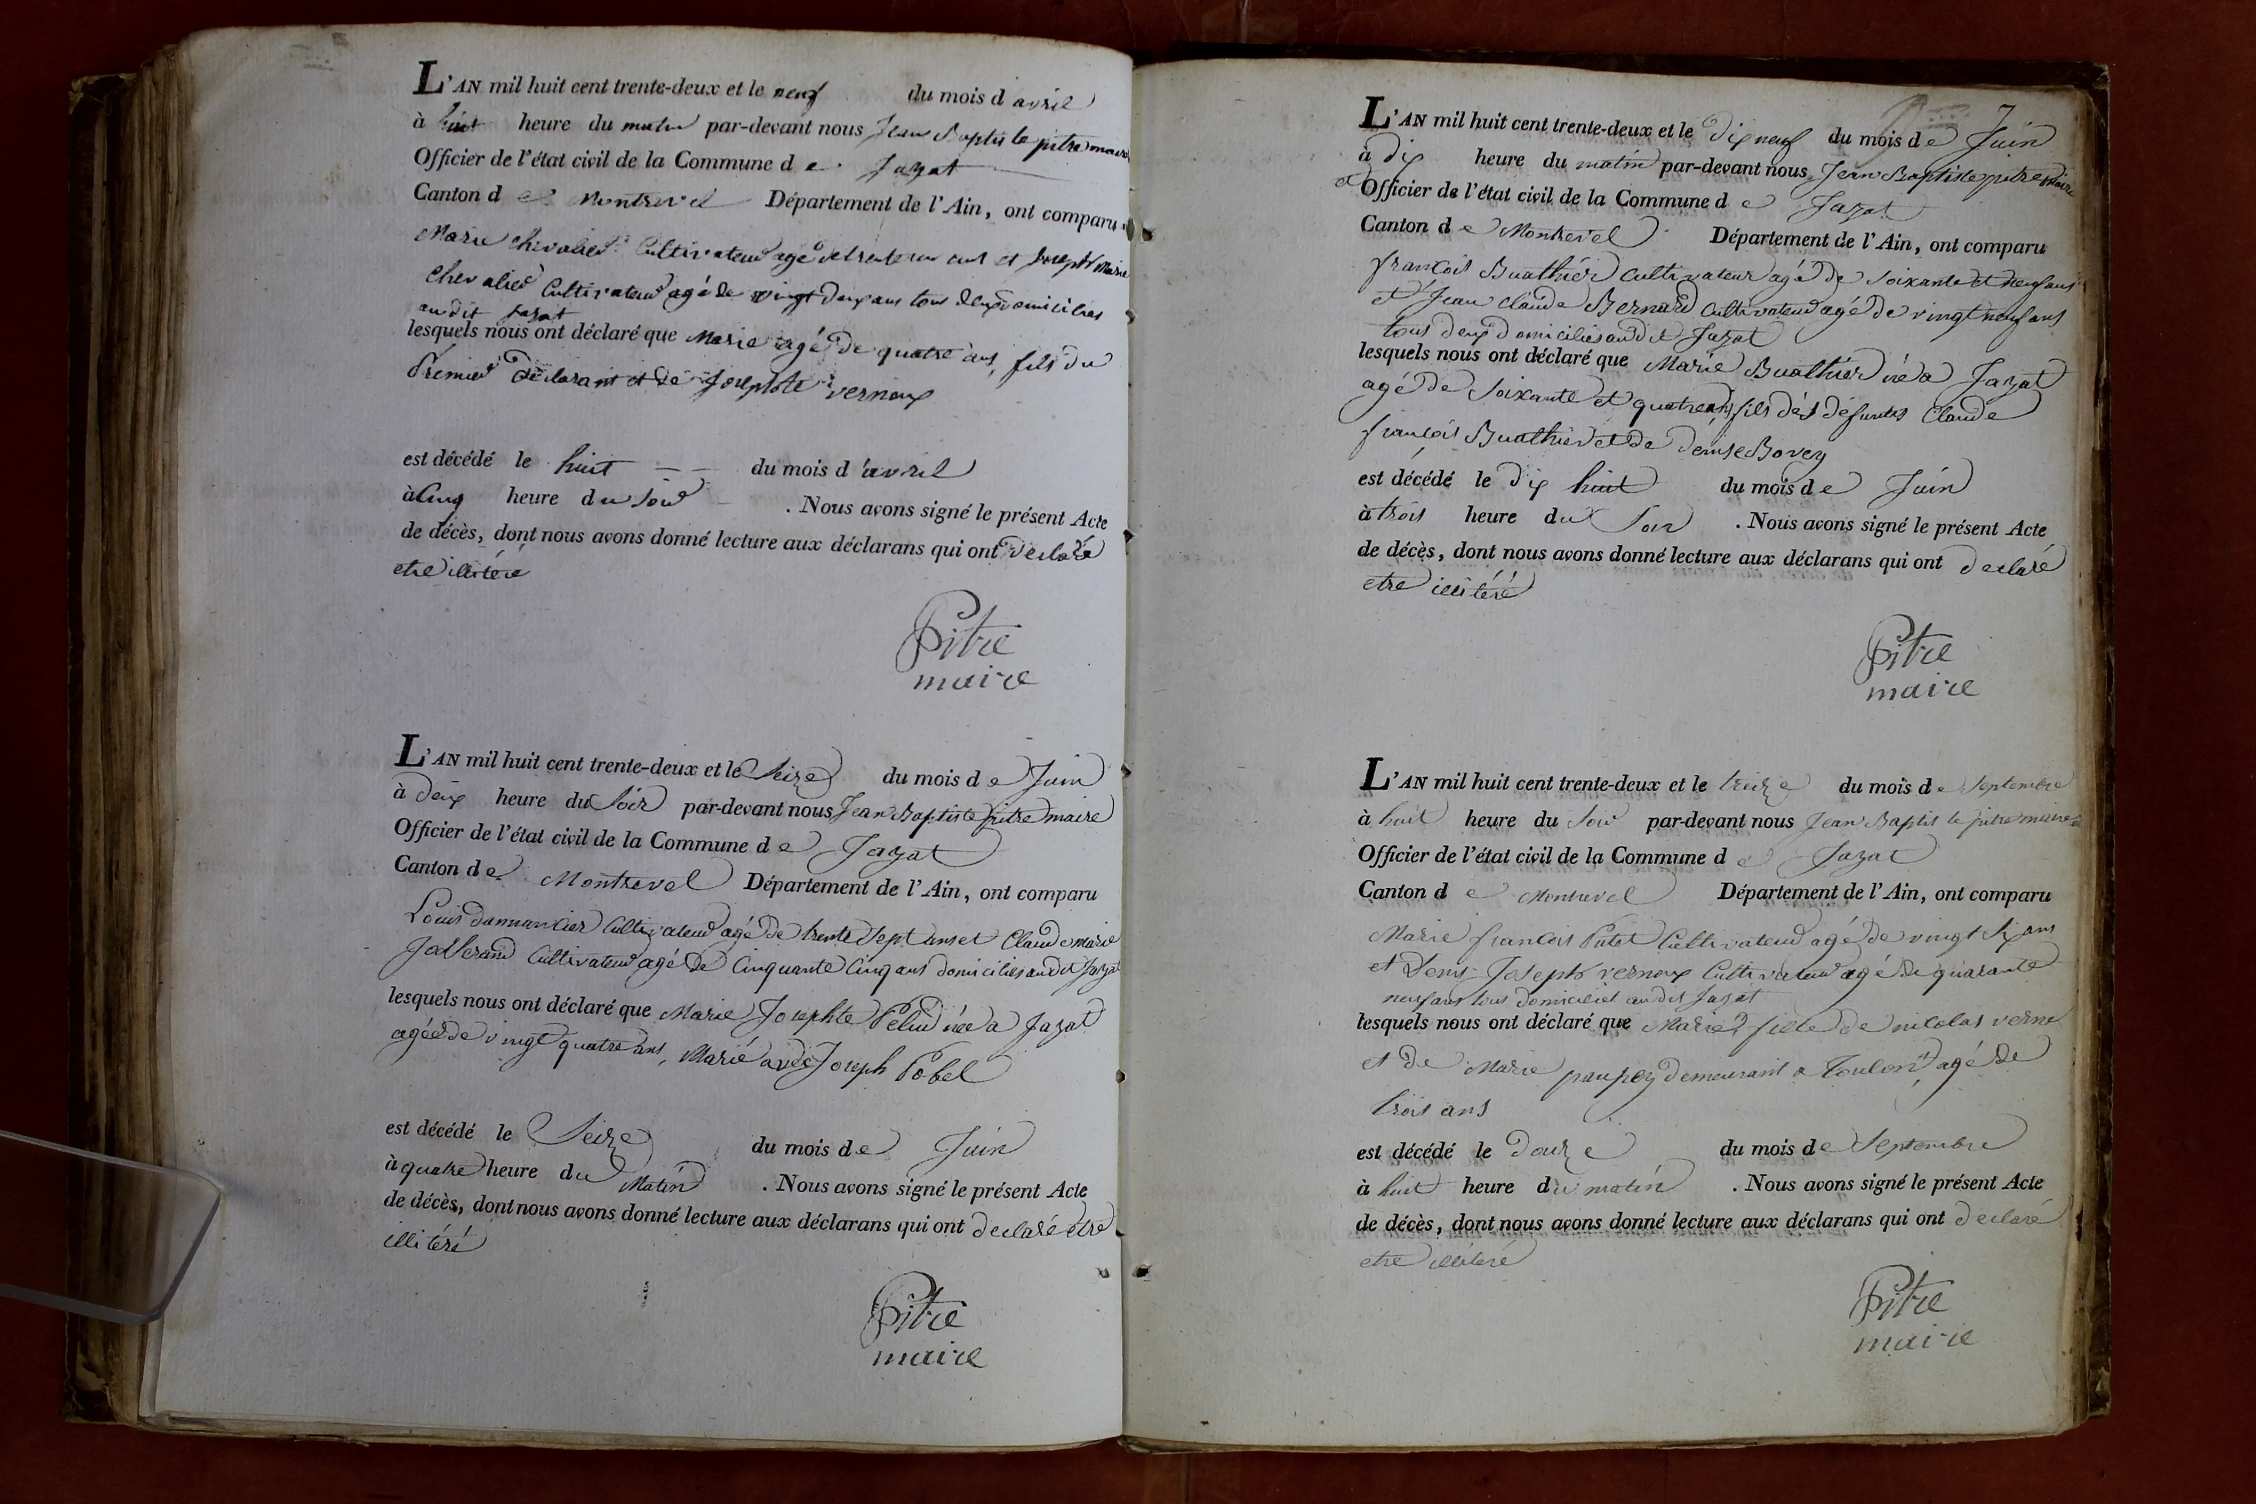 L'AN mil huit cent trente-deux et le neuf du mois d avril
à huit heure du matin par-devant nous Jean Baptiste pitre maire
Officier de l'état civil de la Commune d e Jayat
Canton d e Montrevel Département de l'Ain, ont comparu
Marie chevalier Cultivateur agé de trente un ans et Joseph Marie
chevalier Cultivateur agé de vingt deux ans tous deux domiciliés
audit Jayat
lesquels nous ont déclaré que Marie agé de quatre ans, fils du
Premier Déclarant et de Josephte vernoux
est décédé le huit du mois d avril
à Cinq heure du Soir . Nous avons signé le présent Acte
de décès, dont nous avons donné lecture aux déclarans qui ont declaré
etre illitéré
Pitre
maire
L'AN mil huit cent trente-deux et le Seize du mois d e Juin
à deux heure du Soir par-devant nous Jean Baptiste pitre maire
Officier de l'état civil de la Commune d e Jayat
Canton d e Montrevel Département de l'Ain, ont comparu
Louis Cultivateur agé de trente Sept ans et Claude marie
Josserand Cultivateur agé de Cinquante Cinq ans domiciliés audit Jayat
lesquels nous ont déclaré que Marie Josephte née a Jayat
agée de vingt quatre ans, Marié avec Joseph Pobel
est décédé le Seize du mois d e Juin
à quatre heure du Matin . Nous avons signé le présent Acte
de décès, dont nous avons donné lecture aux déclarans qui ont declaré etre
illitéré
Pitre
maire
7
L'AN mil huit cent trente-deux et le dix neuf du mois d e Juin
à dix heure du matin par-devant nous Jean Baptiste pitre maire
et Officier de l'état civil de la Commune d e Jayat
Canton d e Montrevel Département de l'Ain, ont comparu
françois Buathier Cultivateur agé de soixante et neuf ans
et Jean claude Bernard Cultivateur agé de vingt neuf ans
tous deux domiciliés audit Jayat
lesquels nous ont déclaré que Marie Buathier né a Jayat
agé de Soixante et quatre ans fils des défunts Claude
françois Buathier et de denise Bovey
est décédé le dix huit du mois d e Juin
à trois heure du Soir . Nous avons signé le présent Acte
de décès, dont nous avons donné lecture aux déclarans qui ont declaré
etre illitéré
Pitre
maire
L'AN mil huit cent trente-deux et le treize du mois d e Septembre
à huit heure du Soir par-devant nous Jean Baptiste pitre maire
Officier de l'état civil de la Commune d e Jayat
Canton d e Montrevel Département de l'Ain, ont comparu
Marie françois Putet Cultivateur agé de vingt Six ans
et Denis Joseph vernoux Cultivateur agé de quarante
neuf ans tous domiciliés audit Jayat
lesquels nous ont déclaré que Marie fille de nicolas verne
et de Marie paupey demeurant a Toulon, agé de
trois ans
est décédé le douze du mois d e Septembre
à huit heure du matin . Nous avons signé le présent Acte
de décès, dont nous avons donné lecture aux déclarans qui ont declaré
etre illitéré
Pitre
maire